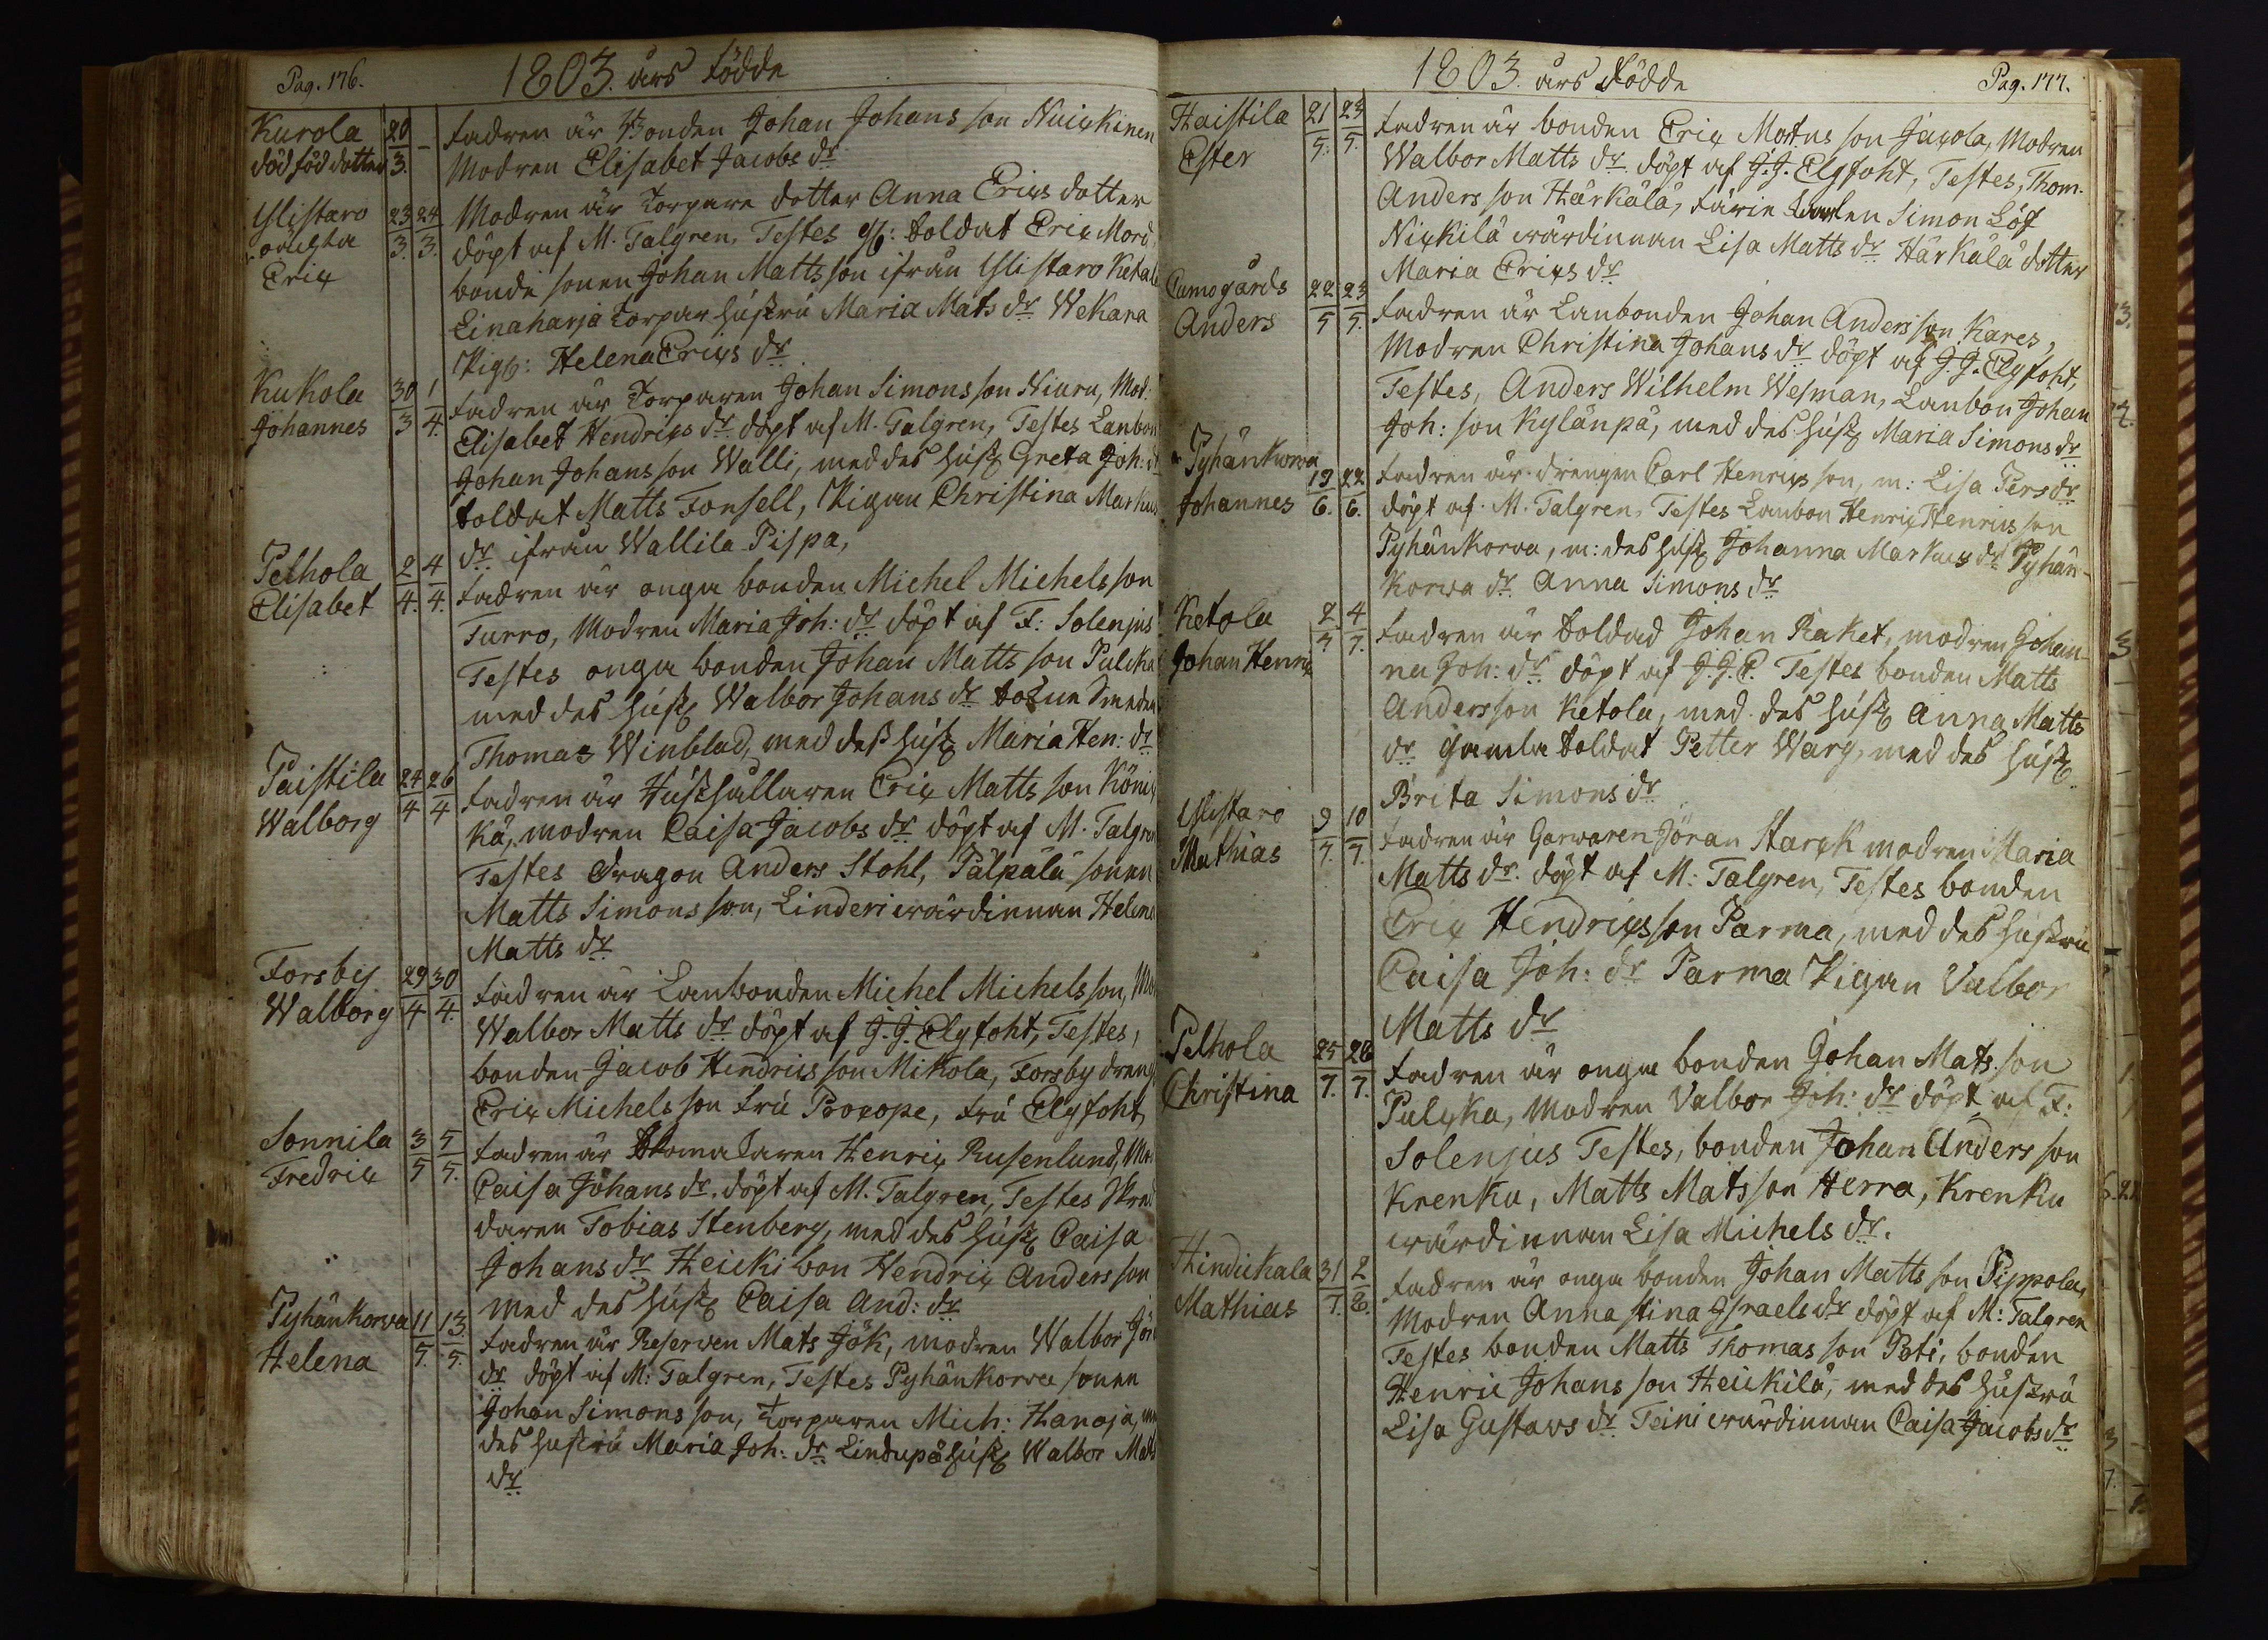 Pag. 176.
1803. års födde
Kurola 20/3. – fadren är Bonden Johan Johans son Nuickinen
död föd dotter Modren Elisabet Jacobs dr
Ylistaro 23/3. 24/3. Modren är Torpare dotter Anna Erics dotter
oäckta döpt af M. Talgren, Testes soldat Eric Mord,
Eric bonde sonen Johan Matts son ifrån Ylistaro Ketala
Linaharja Torpar hustru Maria Mats dr Wekara
Pig: Helena Erics dr
Kukola 30/3 1/4. fadren är Torparen Johan Simons son Niaru, Mod:
Johannes Elisabet Hendrics dr döpt af M. Talgren, Testes Lanbon
Johan Johans son Walli, med des hust Greta Joh: dr
soldat Matts Fonsell, Pigan Christina Markus
dr ifrån Wallila Pispa,
Pelhola 2/4. 4/4. fadren är onga bonden Michel Michels son
Elisabet Turro, Modren Maria Joh: dr döpt af F: Solenjus
Testes onga bonden Johan Matts son Pulcka
med des hust Walbor Johans dr sokne Smeden
Thomas Winblad, med dess hust Maria Hen: dr
Paistila 24/4 26/4 fadren är Hushållaren Eric Matts son Könic
Walborg kä, modren Caisa Jacobs dr döpt af M. Talgren
Testes Dragon Anders Stohl, Pälpälä sonen
Matts Simons son, Linderi wärdinnan Helena
Matts dr
Forsby 29/4 30/4. fadren är Lanbonden Michel Michels son, Mo
Walborg Walbor Matts dr döpt af J. J. Elgfoht, Testes,
bonden Jacob Hindrics son Mikola, Forsby dreng
Eric Michels son fru Procope, fru Elgfoht,
Sonnila 3/5 5/5. fadren är Skomakaren Henric Rusenlund, Mo
Fredric Caisa Johans dr. döpt af M. Talgren, Testes Skred
daren Tobias Stenberg, med des hust Caisa
Johans dr Heicki bon Hendric Anders son
med des hust Caisa And: dr
Pyhänkorwa 11/5. 13/5. fadren är Reserven Mats Gök, modren Walbor Jör
Helena dr döpt af M: Talgren, Testes Pyhänkorwa sonen
Johan Simons son, Torparen Mich: Hanoja, m
des hustru Maria Joh: dr Lindupä hust Walbor Matts
dr
1803. års födde
Pag. 177.
Haistila 21/5. 23/5. fadren är bonden Eric Mats son Jacola, Modren
Ester Walbor Matts dr döpt af J. J. Elgfoht, Testes, Thom.
Anders son Härkälä, färie karlen Simon Löf
Nickilä wärdinnan Lisa Matts dr Härkälä dotter
Maria Erics dr
Cumogårds 22/5 23/5. fadren är Lanbonden Johan Anders son Kares,
Anders Modren Christina Johans dr döpt af J. J. Elgfoht,
Testes, Anders Wilhelm Wesman, Lanbon Johan
Joh: son Kylänpä, med des hust Maria Simons dr
Pyhänkorva 19/6. 22/6. fadren är drengen Carl Henrics son, m: Lisa Pers dr
Johannes döpt af M. Talgren, Testes Lanbon Henric Henrics son
Pyhänkorva, m: des hust Johanna Markus dr Pyhän-
korwa dr Anna Simons dr
Ketola 2/7 4/7. fadren är soldad Johan Raket, modren Johan-
Johan Henric na Joh: dr döpt af J. J. E. Testes bonden Matts
Anders son Ketola, med des hust Anna Matts
dr gamla soldat Petter Warg, med des hust
Brita Simons dr
Ylistaro 9/7. 10/7. fadren är Garwaren Jöran Starck modren Maria
Mathias Matts dr. döpt af M: Talgren, Testes bonden
Eric Hendrics son Parma, med des hustru
Caisa Joh: dr Parma Pigan Valbor
Matts dr
Pelhola 25/7. 28/7. fadren är onga bonden Johan Mats son
Christina Pulcka, Modren Valbor Joh: dr döpt af F:
Solenjus Testes, bonden Johan Anders son
Krenku, Matts Mats son Herra, Krenku
wärdinnan Lisa Michels dr.
Hindickala 31/7. 2/8. fadren är onga bonden Johan Matts son Pippola,
Mathias Modren Anna Stina Israels dr döpt af M: Talgren
Testes bonden Matts Thomas son Poti, bonden
Henric Johans son Heickilä, med des hustru
Lisa Gustavs dr Teini wärdinnan Caisa Jacobs dr